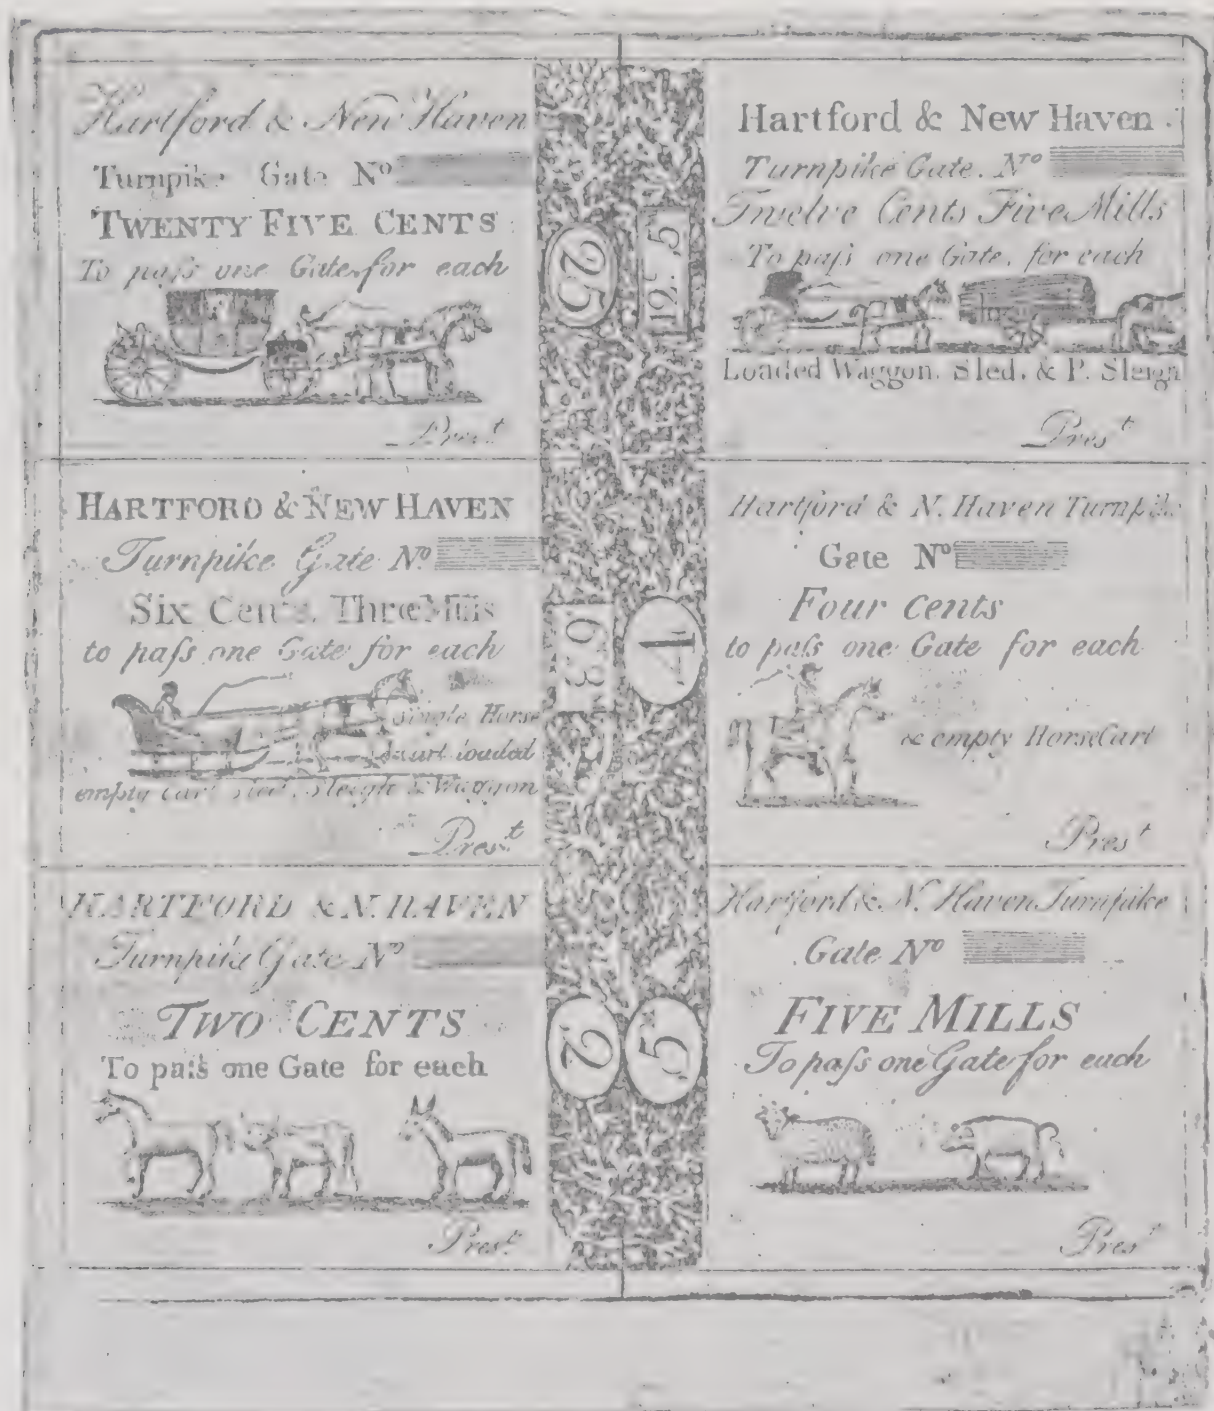 Hartford & New Haven
Turnpike Gate Nº
TWENTY FIVE CENTS
To paſs one Gate, for each
Presᵗ
25
12. 5
Hartford & New Haven
Turnpike Gate. Nº
Twelve Cents Five Mills
To paſs one Gate, for each
Loaded Waggon, Sled, & P. Sleigh
Presᵗ
HARTFORD & NEW HAVEN
Turnpike Gate Nº
Six Cents, Three Mills
to paſs one Gate for each
single Horse
loaded
empty Cart Sled, Sleigh & Waggon
Presᵗ
6 3
4
Hartford & N. Haven Turnpike
Gate Nº
Four Cents
to paſs one Gate for each
& empty Horse Cart
Presᵗ
HARTFORD & N. HAVEN
Turnpike Gate Nº
TWO CENTS
To paſs one Gate for each
Presᵗ
2
5
Hartford & N. Haven Turnpike
Gate Nº
FIVE MILLS
To paſs one Gate for each
Presᵗ